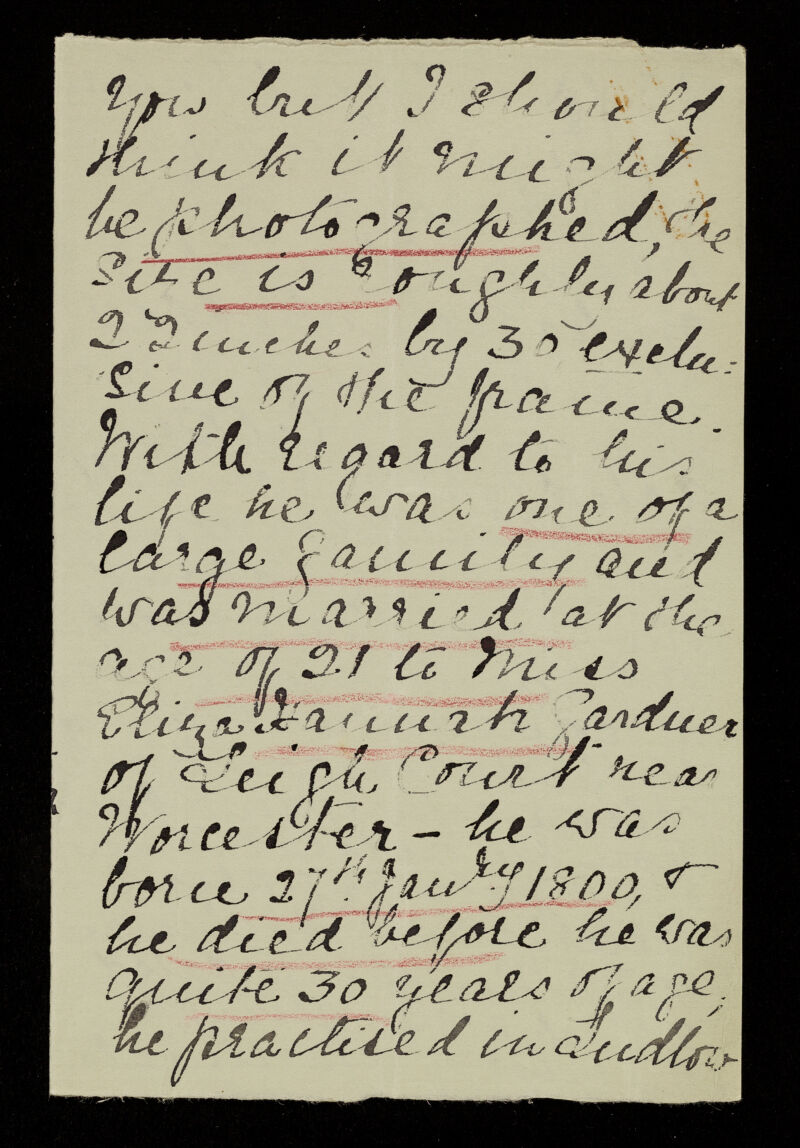 you but I should
think it might
be photographed, the
size is roughly about
22 inches by 30 exclu:
sive of the frame.
With regard to his
life he was one of a
large family and
was married at the
age of 21 to Miss
Eliza Hannah Gardner
of Leigh Court near
Worcester – he was
born 27th. Janry 1800, &
he died before he was
quite 30 years of age,
he practised in Ludlow